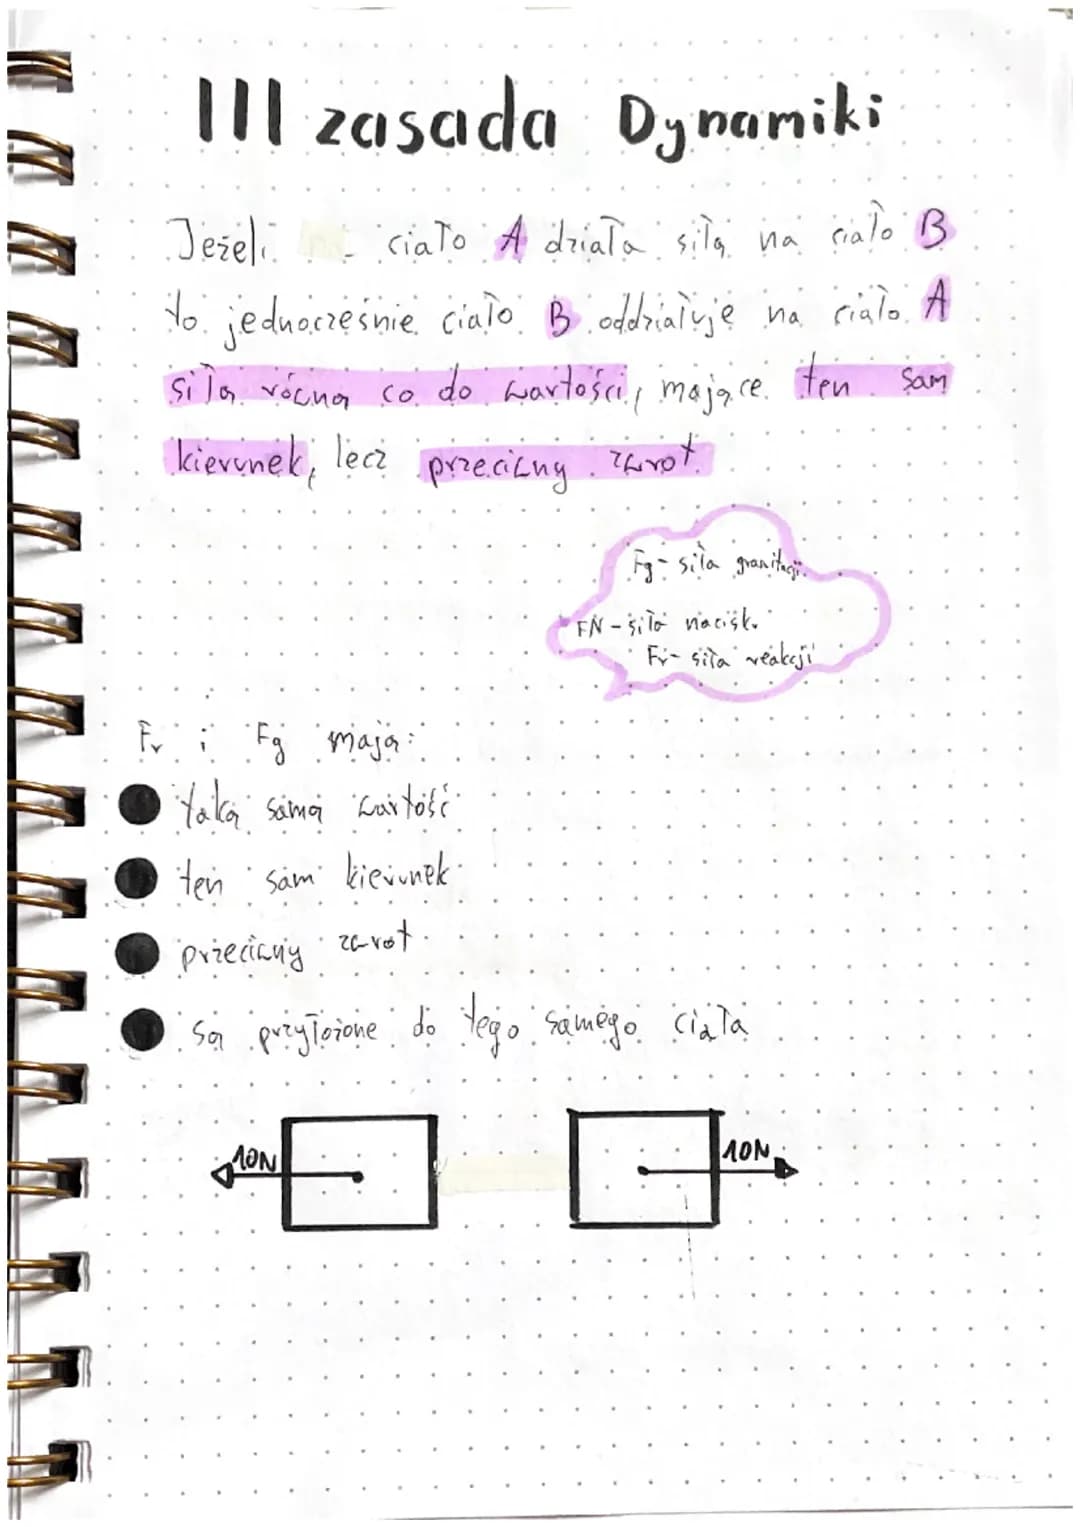 III zasada Dynamiki
Jeżeli ciało A działa siłą na ciało B
to jednocześnie ciało B oddziałuje na ciało A
siłą równą co do wartości, mające ten sam
kierunek, lecz przeciwny zwrot.
Fg - siła grawitacji
FN - siła nacisku
Fr - siła reakcji
Fr i Fg mają:
taką samą wartość
ten sam kierunek
przeciwny zwrot
są przyłożone do tego samego ciała
10N
10N